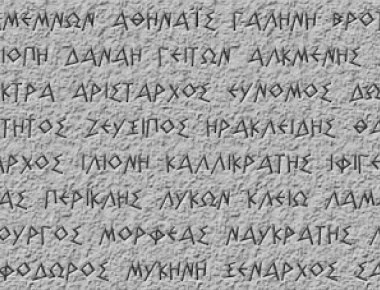 ΜΕΜΝΩΝ ΑΘΗΝΑΪΣ ΓΑΛΗΝΗ ΒΡΟ
ΙΟΠΗ ΔΑΝΑΗ ΓΕΙΤΩΝ ΑΛΚΜΕΝΗΣ
ΚΤΡΑ ΑΡΙΣΤΑΡΧΟΣ ΕΥΝΟΜΟΣ ΔΩ
ΤΗΤΟΣ ΖΕΥΞΙΠΟΣ ΗΡΑΚΛΕΙΔΗΣ ΘΑ
ΑΡΧΟΣ ΙΛΙΟΝΗ ΚΑΛΛΙΚΡΑΤΗΣ ΙΦΙΓΕ
ΑΣ ΠΕΡΙΚΛΗΣ ΛΥΚΩΝ ΚΛΕΙΩ ΛΑΜ
ΟΥΡΓΟΣ ΜΟΡΦΕΑΣ ΝΑΥΚΡΑΤΗΣ
ΦΟΔΩΡΟΣ ΜΥΚΗΝΗ ΞΕΝΑΡΧΟΣ ΣΑ